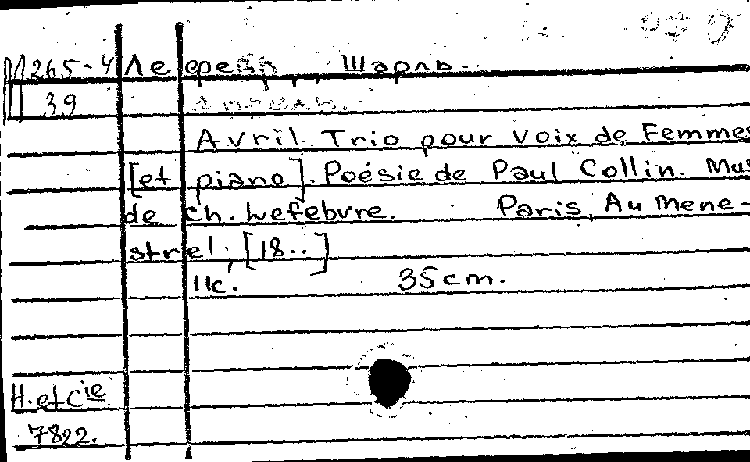 М 265-4 Лефевр, Шарль.
II 39 Апрель.
Avril. Trio pour voix de Femmes
[et piano]. Poésie de Paul Collin. Mus
de Ch. Lefebvre. Paris, Au Mene-
strel, [18..]
11c. 35cm.
H. et Cie
7822.